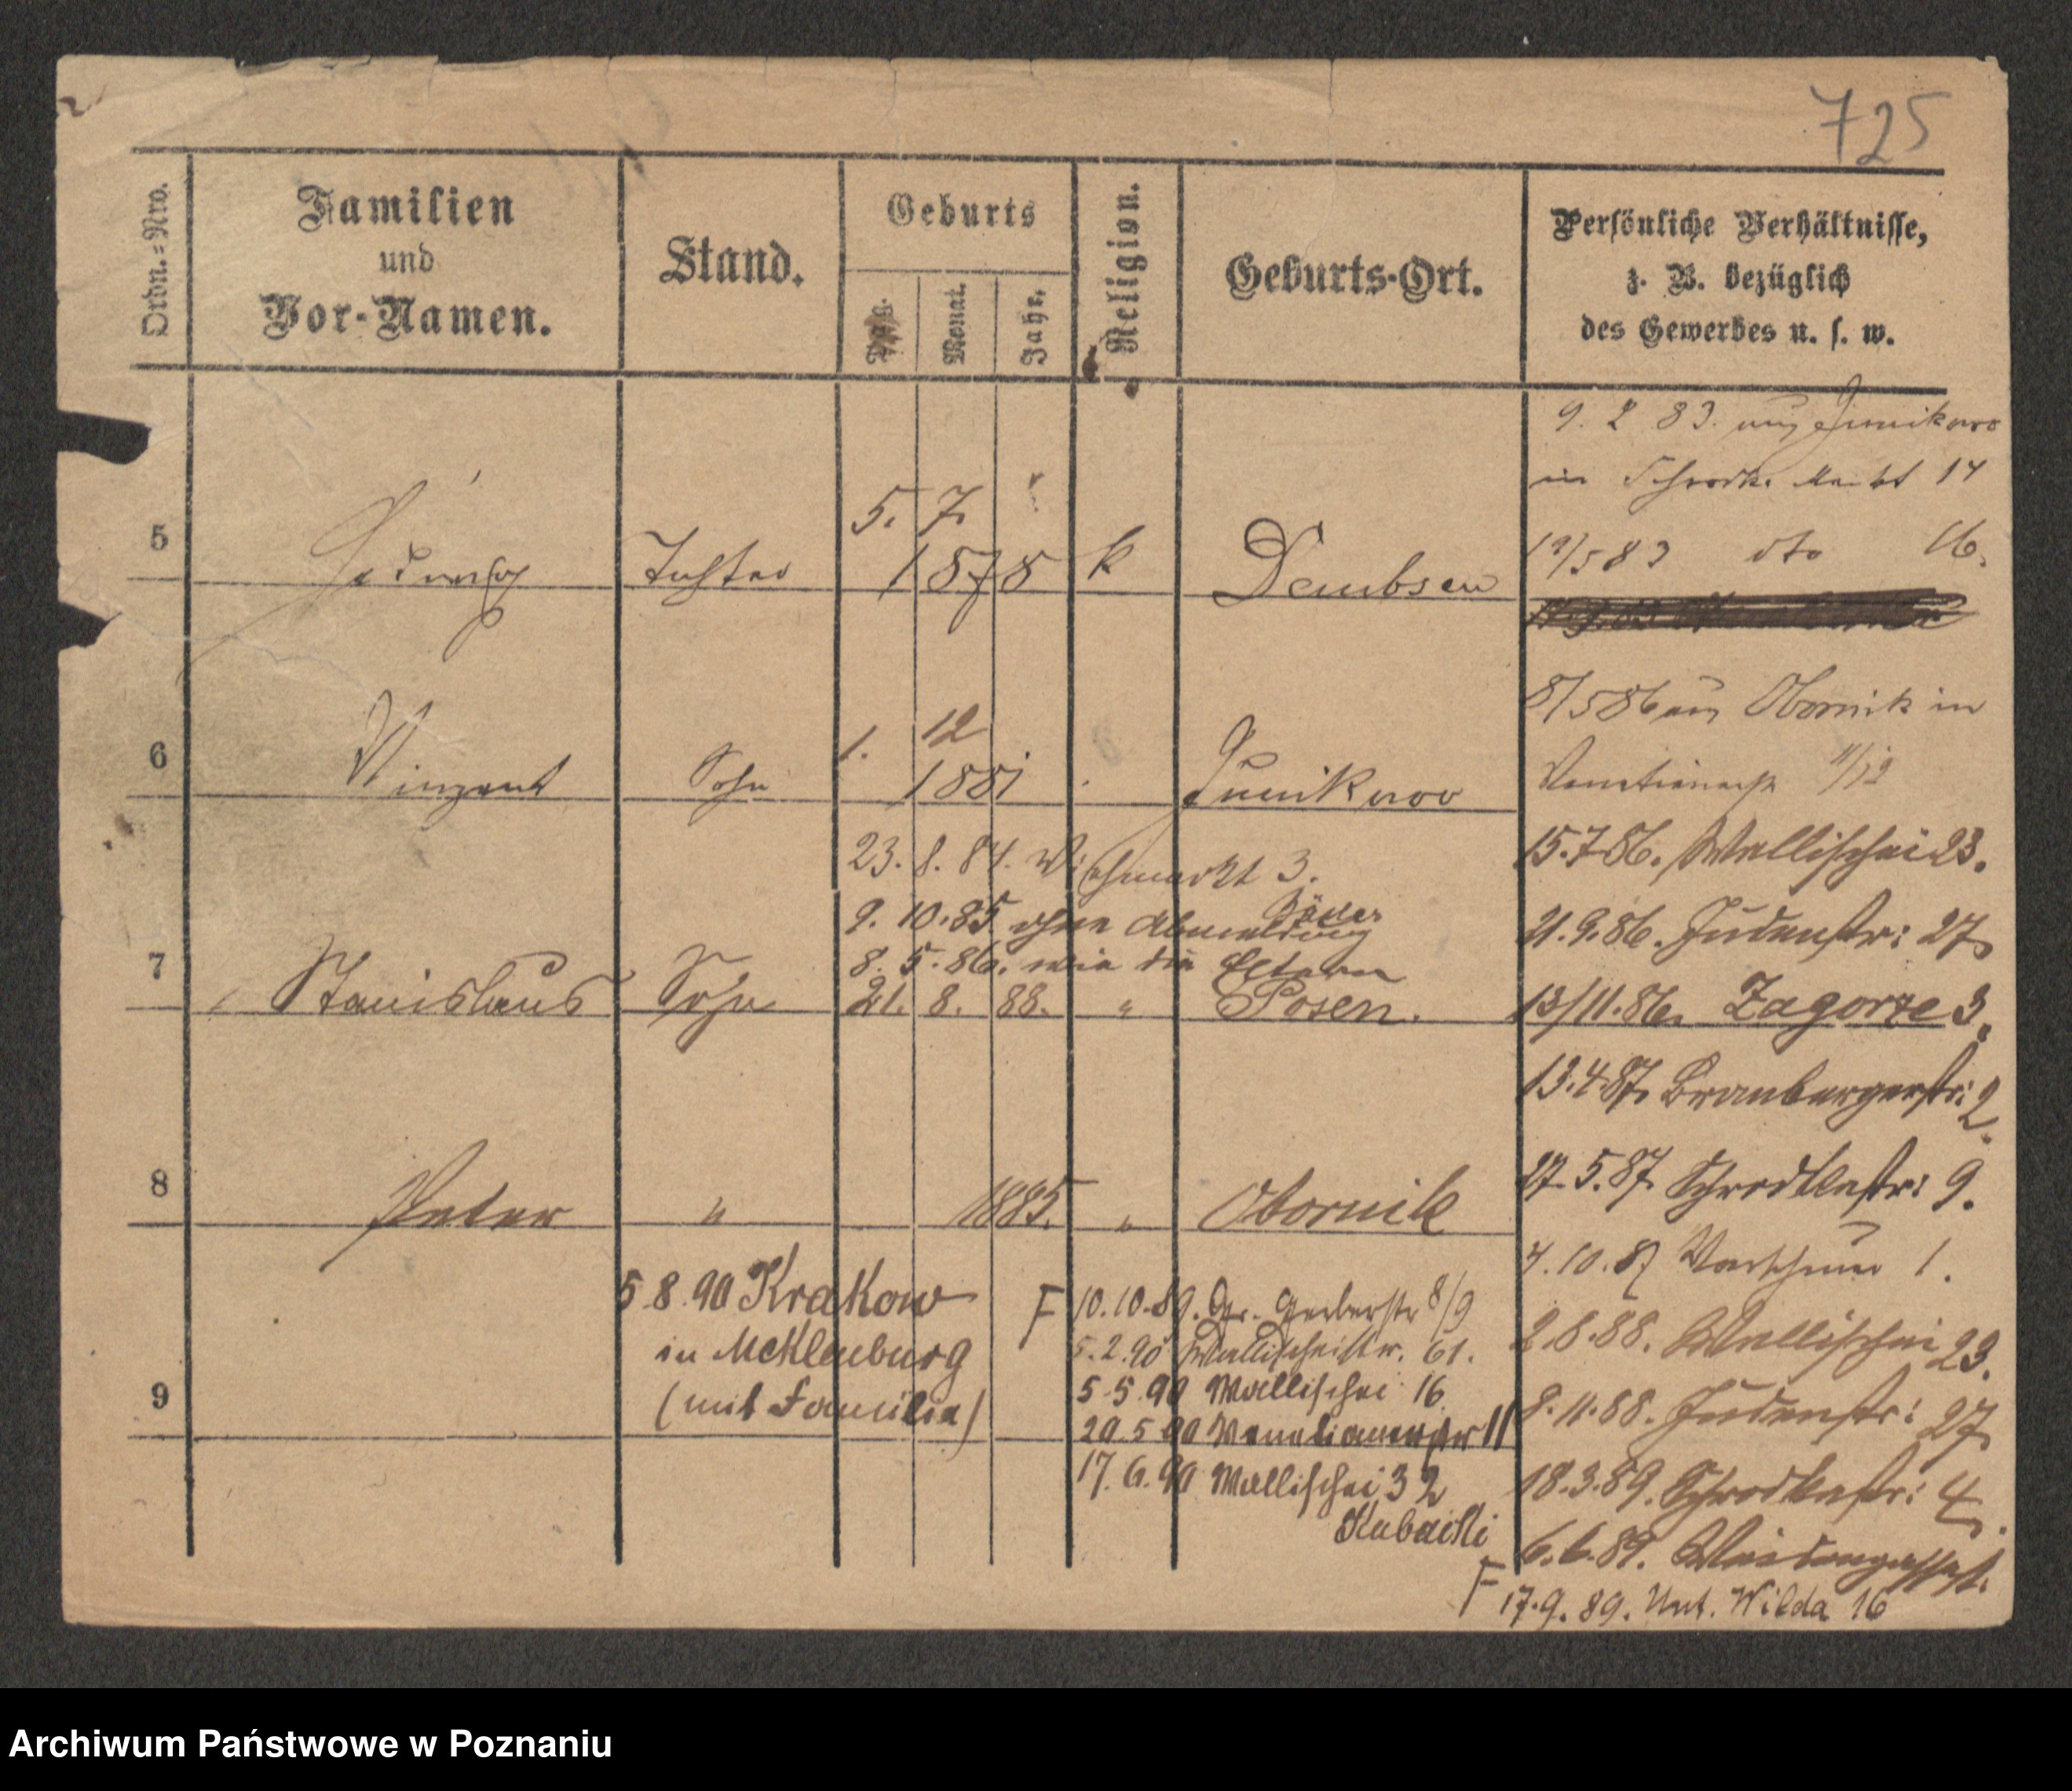 725
Ordn.=Nro.
Familien
und
Vor-Namen.
Stand.
Geburts
Tag.
Monat.
Jahr.
Religion.
Geburts-Ort.
Persönliche Verhältnisse,
z. B. bezüglich
des Gewerbes u. s. w.
5 Hedwig Tochter 5. 7. 1878 k Dembsen
6 Vinzent Sohn 1. 12 1881 Junikowo
23. 8. 84. Viehmarkt 3.
9. 10. 85. ohne Abmeldung
8. 5. 86. wie die Eltern
7 Stanislaus Sohn 21. 8. 88. " Posen.
8 Peter " 1885. " Obornik
9
5. 8. 90 Krakow
in Mcklenburg
(mit Familie)
F 10.10.89. Gr. Gerberstr 8/9
5.2.90 Wallischeistr. 61.
5.5.90 Wallischei 16
20.5.90 Venetianerstr 11
17.6.90 Wallischei 32
Kubacki
9. 2 83. aus Junikowo
in Schrodk. Markt 14
19/5 83 dto 16.
8/5 86 aus Obornik in
Venetianerstr 11/12
15.7.86. Wallischei 23.
21.9.86. Judenstr: 27
13/11.86. Zagorze 3.
13.4.87. Brombergerstr: 2.
27.5.87. Schrodkastr: 9.
4.10.87 1.
2.8.88. Wallischei 23.
8.11.88. Judenstr: 27
18.3.89. Schrodkastr: 4.
6.6.89. Weidengasse
F 17.9.89. Unt. Wilda 16
Archiwum Państwowe w Poznaniu